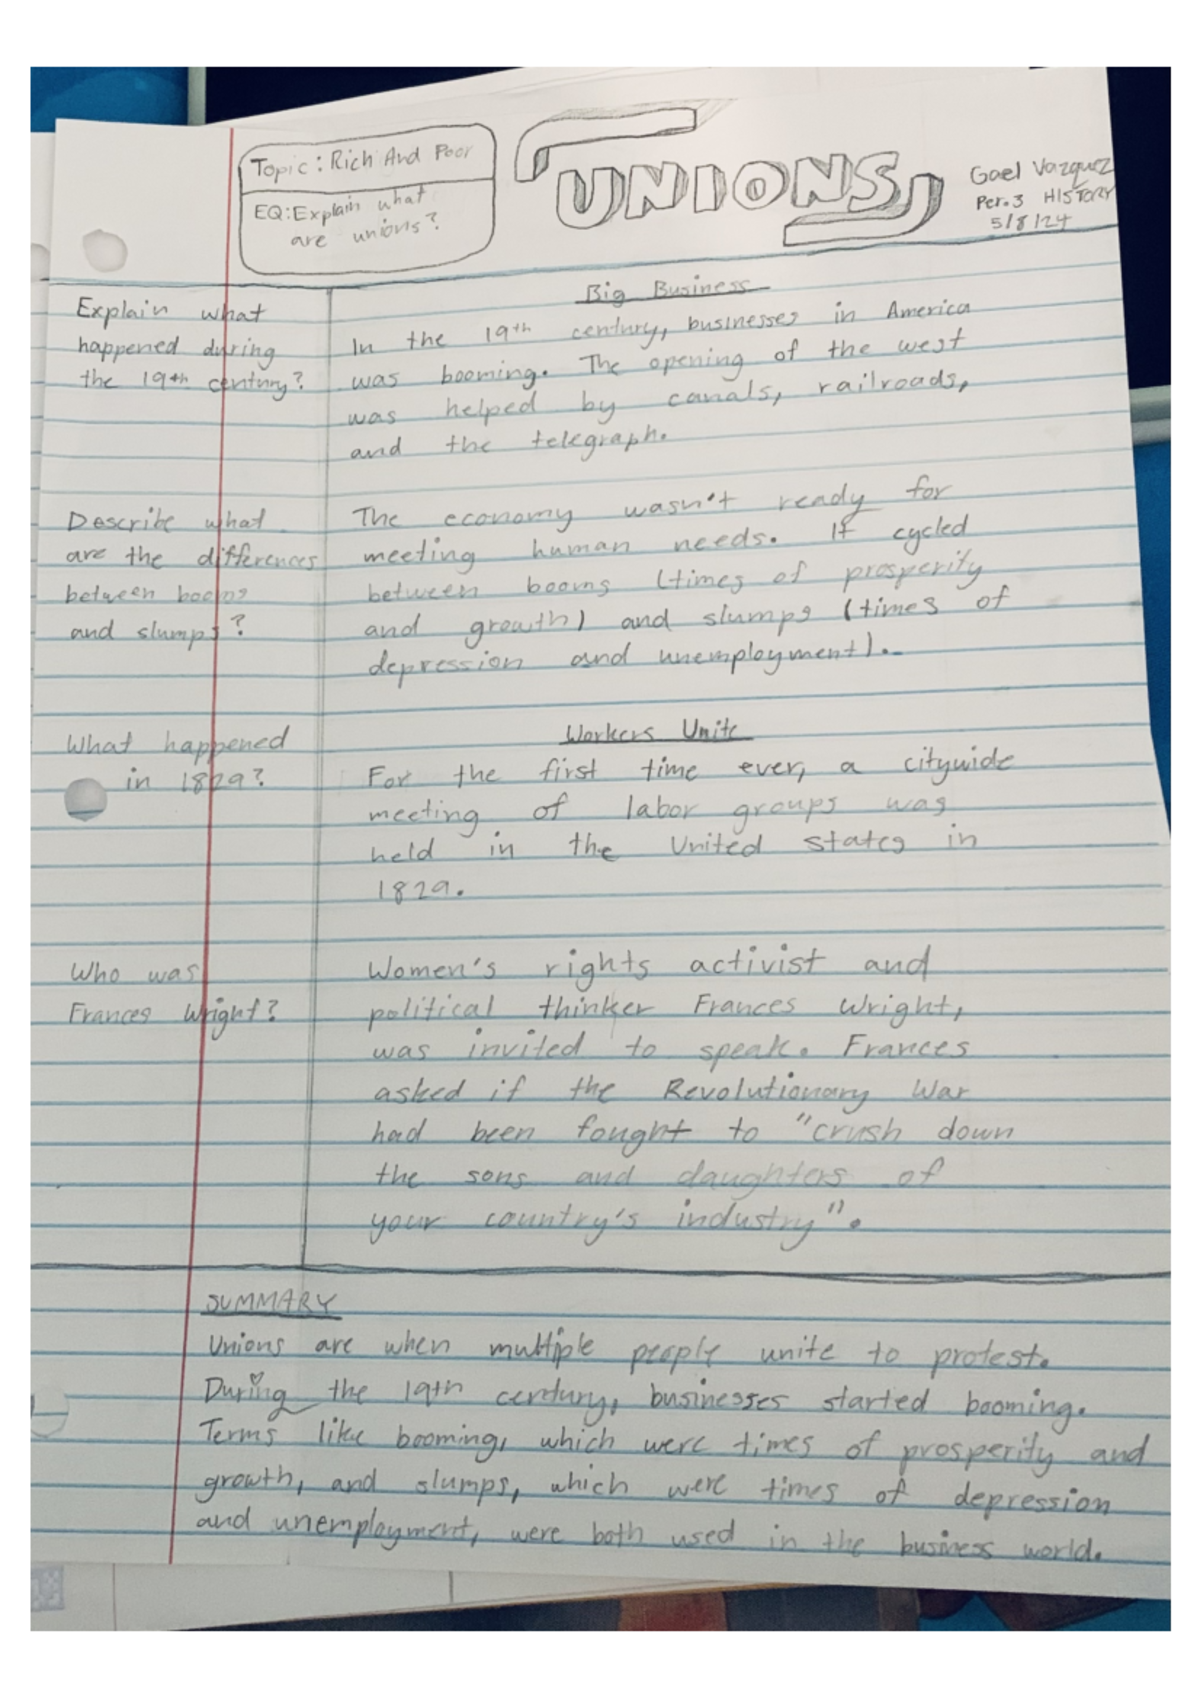 Topic: Rich And Poor
EQ: Explain what
are unions?
UNIONS
Gael Vazquez
Per.3 HISTORY
5/8/24
Explain what
happened during
the 19th century?
Big Business
In the 19th century, businesses in America
was booming. The opening of the west
was helped by canals, railroads,
and the telegraph.
Describe what
are the differences
between booms
and slumps?
The economy wasn't ready for
meeting human needs. It cycled
between booms (times of prosperity
and growth) and slumps (times of
depression and unemployment).
What happened
in 1829?
Workers Unite
For the first time ever, a citywide
meeting of labor groups was
held in the United states in
1829.
Who was
Frances Wright?
Women's rights activist and
political thinker Frances Wright,
was invited to speak. Frances
asked if the Revolutionary War
had been fought to "crush down
the sons and daughters of
your country's industry".
SUMMARY
Unions are when multiple people unite to protest.
During the 19th century, businesses started booming.
Terms like booming, which were times of prosperity and
growth, and slumps, which were times of depression
and unemployment, were both used in the business world.